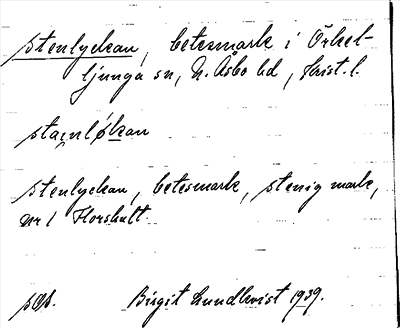 stenlyckan, betesmark i Örkel-
ljunga sn, N. Åsbo hd, Krist. l.
stenlyckan, betesmark, stenig mark,
nr 1 Horshult.
Birgit Lundkvist 1939.